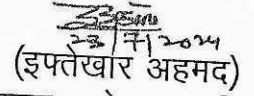 23/7/2024
(इफ्तेखार अहमद)